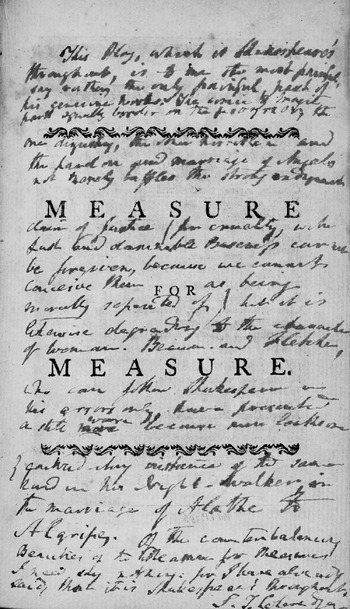 This Play, which is Shakespeare's
throughout, is to me the most painful,
say rather, the only painful, part of
his genuine works. The comic & tragic
parts equally border on the
one disgusting, the other horrible and
the pardon and marriage of Angelo
not merely baffles the strong indignant
MEASURE
claim of Justice (for cruelty, with
Lust and damnable Baseness cannot
be forgiven, because we cannot
conceive them as being
FOR
morally repented of) but it is
likewise degrading to the character
of Woman. Beaum. and Fletcher,
MEASURE.
who can follow Shakespeare in
his errors only, have presented
a still worse because more loathsome
instance of the same
kind in the Night-Walker, in
the marriage of Alathe to
Algripe. Of the counterbalancing
Beauties of the Measure for Measure
I need say nothing: for I have already
said, that it is Shakespeare's throughout.
S. T. Coleridge